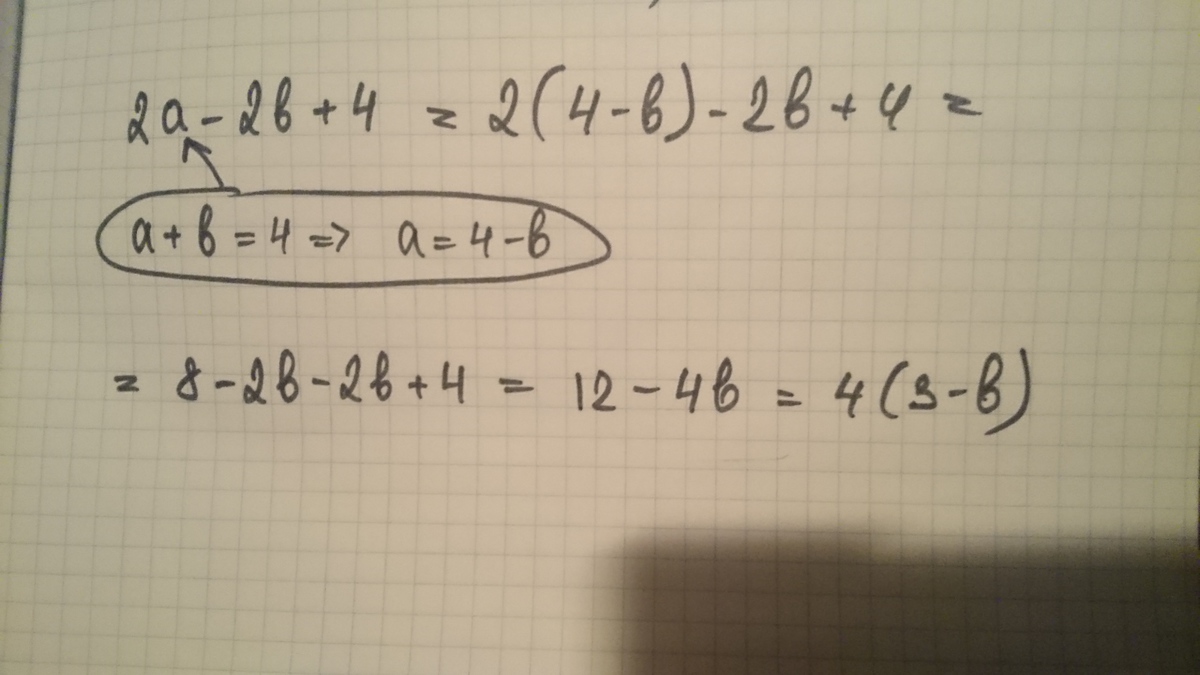 2a - 2b + 4 = 2(4 - b) - 2b + 4 =
a + b = 4 => a = 4 - b
= 8 - 2b - 2b + 4 = 12 - 4b = 4(3 - b)